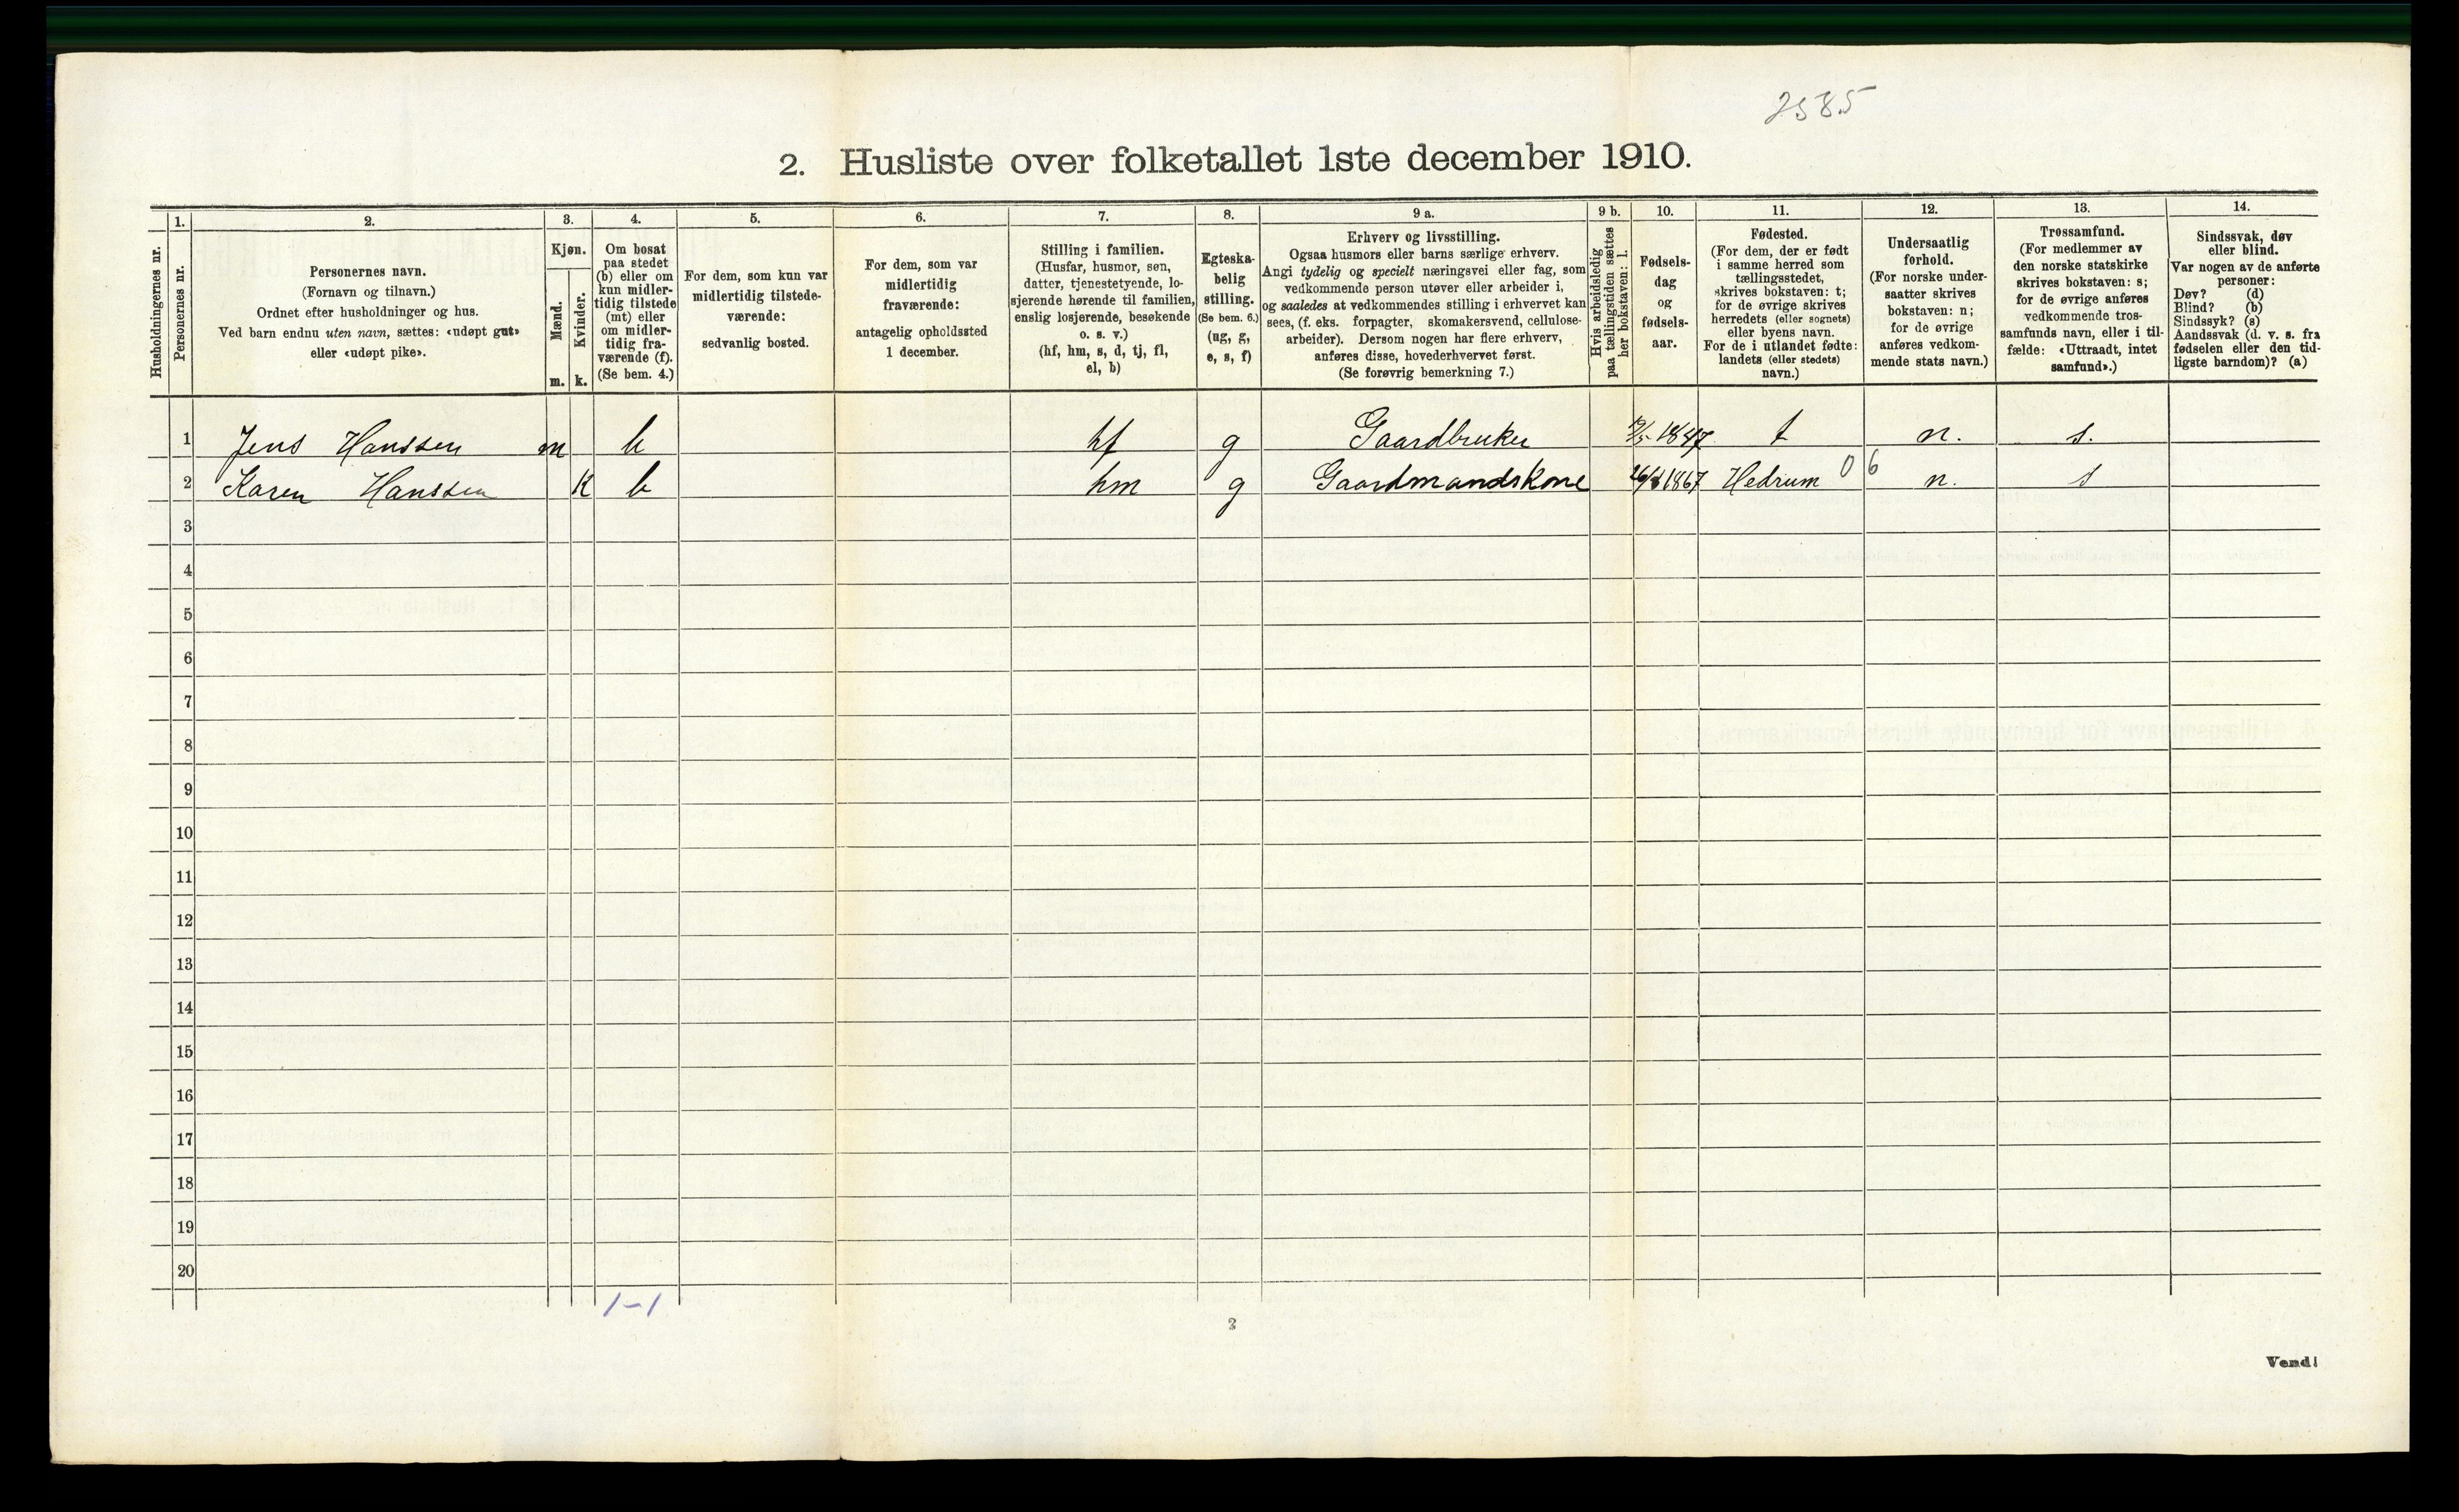 2585
2. Husliste over folketallet 1ste december 1910.
Husholdningernes nr.
1.
Personernes nr.
2.
Personernes navn.
(Fornavn og tilnavn.)
Ordnet efter husholdninger og hus.
Ved barn endnu uten navn, sættes: «udøpt gut»
eller «udøpt pike».
3.
Kjøn.
Mænd.
m.
Kvinder.
k.
4.
Om bosat
paa stedet
(b) eller om
kun midler-
tidig tilstede
(mt) eller
om midler-
tidig fra-
værende (f).
(Se bem. 4.)
5.
For dem, som kun var
midlertidig tilstede-
værende:
sedvanlig bosted.
6.
For dem, som var
midlertidig
fraværende:
antagelig opholdssted
1 december.
7.
Stilling i familien.
(Husfar, husmor, søn,
datter, tjenestetyende, lo-
sjerende hørende til familien,
enslig losjerende, besøkende
o. s. v.)
(hf, hm, s, d, tj, fl,
el, b)
8.
Egteska-
belig
stilling.
(Se bem. 6.)
(ug, g,
e, s, f)
9 a.
Erhverv og livsstilling.
Ogsaa husmors eller barns særlige erhverv.
Angi tydelig og specielt næringsvei eller fag, som
vedkommende person utøver eller arbeider i,
og saaledes at vedkommendes stilling i erhvervet kan
sees, (f. eks. forpagter, skomakersvend, cellulose-
arbeider). Dersom nogen har flere erhverv,
anføres disse, hovederhvervet først.
(Se forøvrig bemerkning 7.)
9 b.
Hvis arbeidsledig
paa tællingstiden sættes
her bokstaven: l.
10.
Fødsels-
dag
og
fødsels-
aar.
11.
Fødested.
(For dem, der er født
i samme herred som
tællingsstedet,
skrives bokstaven: t;
for de øvrige skrives
herredets (eller sognets)
eller byens navn.
For de i utlandet fødte:
landets (eller stedets)
navn.)
12.
Undersaatlig
forhold.
(For norske under-
saatter skrives
bokstaven: n;
for de øvrige
anføres vedkom-
mende stats navn.)
13.
Trossamfund.
(For medlemmer av
den norske statskirke
skrives bokstaven: s;
for de øvrige anføres
vedkommende tros-
samfunds navn, eller i til-
fælde: «Uttraadt, intet
samfund».)
14.
Sindssvak, døv
eller blind.
Var nogen av de anførte
personer:
Døv? (d)
Blind? (b)
Sindssyk? (s)
Aandssvak (d. v. s. fra
fødselen eller den tid-
ligste barndom)? (a)
1 Jens Hanssen m b hf g Gaardbruker 1847 t n. s.
2 Karen Hanssen K b hm g Gaardmandskone 1867 Hedrum 0 6 n. s
3
4
5
6
7
8
9
10
11
12
13
14
15
16
17
18
19
20
1-1
2
Vend!